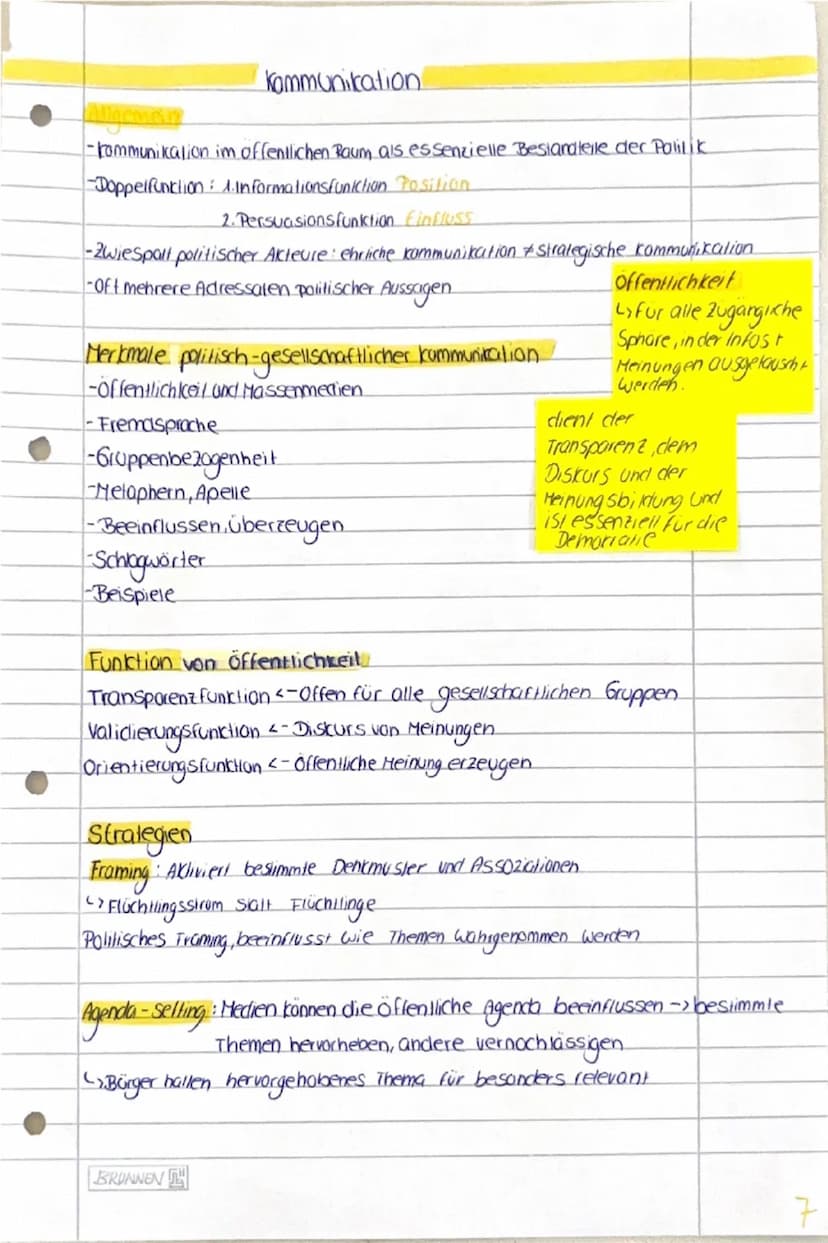 Kommunikation
Allgemein
-Kommunikation im öffentlichen Raum als essenzielle Bestandteile der Politik
-Doppelfunktion: 1. Informationsfunktion Position
2. Persuasionsfunktion Einfluss
-Zwiespalt politischer Akteure: ehrliche Kommunikation ≠ strategische Kommunikation
-Oft mehrere Adressaten politischer Aussagen
Öffentlichkeit
↳ Für alle Zugängliche
Sphäre, in der Infos +
Meinungen ausgetauscht
werden.
Merkmale politisch-gesellschaftlicher Kommunikation
-Öffentlichkeit und Massenmedien
-Fremdsprache
-Gruppenbezogenheit
-Metaphern, Apelle
-Beeinflussen, Überzeugen
-Schlagwörter
-Beispiele
dient der
Transparenz, dem
Diskurs und der
Meinungsbildung und
ist essenziell für die
Demokratie
Funktion von Öffentlichkeit
Transparenzfunktion <- Offen für alle gesellschaftlichen Gruppen
Validierungsfunktion <- Diskurs von Meinungen
Orientierungsfunktion <- Öffentliche Meinung erzeugen
Strategien
Framing: Aktiviert bestimmte Denkmuster und Assoziationen
↳ Flüchtlingsstrom statt Flüchtlinge
Politisches Framing, beeinflusst wie Themen wahrgenommen werden
Agenda-Setting: Medien können die öffentliche Agenda beeinflussen -> bestimmte
Themen hervorheben, andere vernachlässigen
↳ Bürger halten hervorgehobenes Thema für besonders relevant
BRUNNEN
7